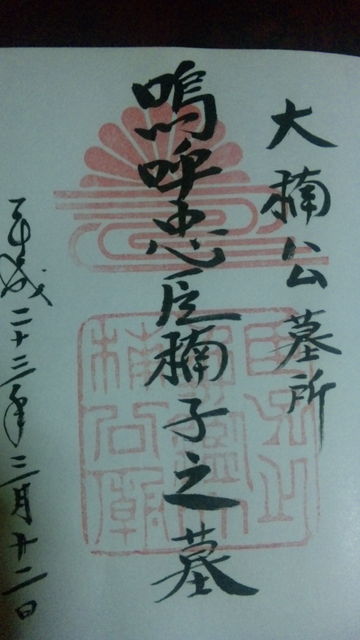 大楠公墓所
嗚呼忠臣楠子之墓
平成二十三年三月廿二日